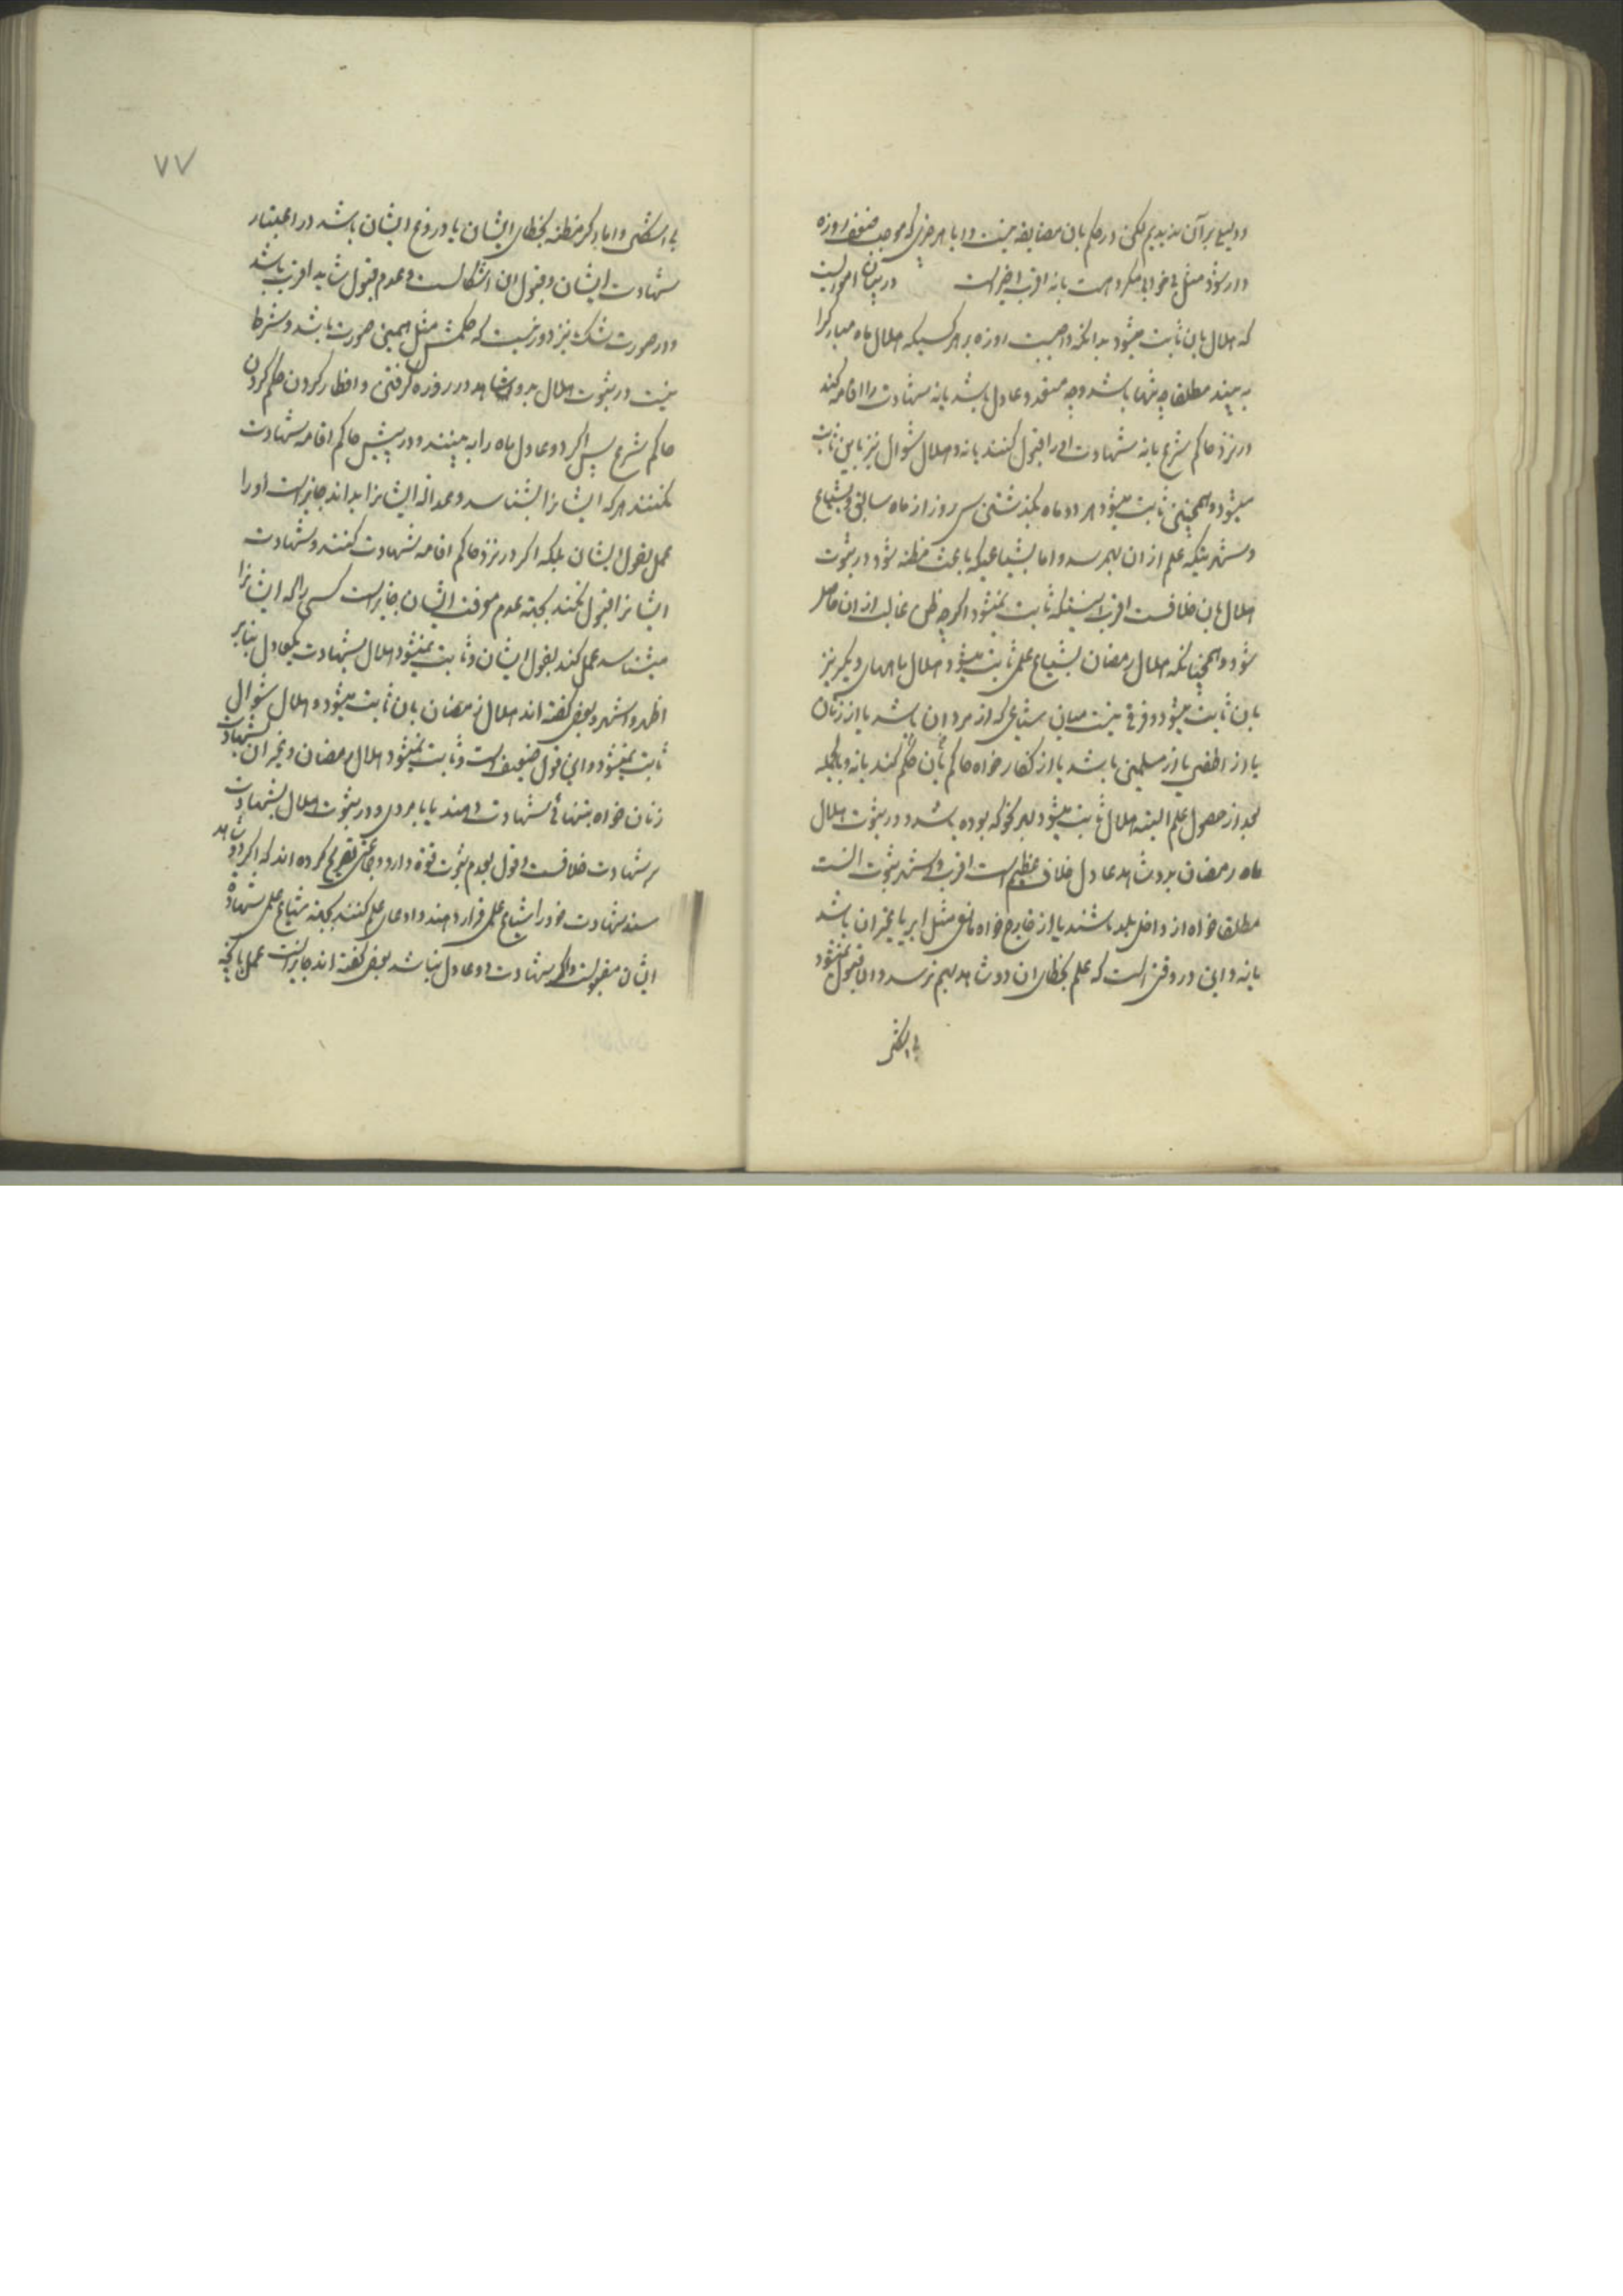 و دلیلی بر آن ندیدیم لکن در حکم بان مضایقه نیست و ایا هر چیزی که موجب ضعف روزه
دار شود مثل بی خوابی مکروهست یا نه اقرب اخیر است در بیان اموریست
که هلال بان ثابت میشود بدانکه واجبست روزه بر هر کسیکه هلال ماه مبارکرا
به بیند مطلقا چه تنها باشد و چه متعدد و عادل باشد یا نه شهادت را اقامه کند
در نزد حاکم شرع یا نه شهادت او را قبول کنند یا نه و هلال شوال نیز باین ثابت
میشود و همچنین ثابت میشود هر دو ماه بگذشتن سی روز از ماه سابق و بشیاع
و شهرتیکه علم از ان بهمرسد و اما بشیاعیکه باعث مظنه شود در ثبوت
هلال بان خلافست اقرب اینستکه ثابت نمیشود اگر چه ظن غالب از ان حاصل
شود و همچنانکه هلال رمضان بشیاع علمی ثابت میشود هلال ماههای دیگر نیز
بان ثابت میشود و فرقی نیست میان شیاعی که از مردان باشد یا از زنان
یا از اطفال یا از مسلمین باشد یا از کفار خواه حاکم بآن حکم کند یا نه و بالجمله
بعد از حصول علم البته هلال ثابت میشود بهر نحو که بوده باشد و در ثبوت هلال
ماه رمضان بدو شاهد عادل خلاف عظیم است اقرب و اشهر ثبوت انست
مطلقا خواه از داخل بلد باشند یا از خارج خواه مانعی مثل ابر یا غیر ان باشد
یا نه و این در وقتی است که علم بخطای ان دو شاهد بهم نرسد و الا قبول نمیشود
بی اشکال
۷۷
بی اشکال و اما اگر مظنه بخطای ایشان یا دروغ ایشان باشد در اعتبار
شهادت ایشان و قبول ان اشکالست و عدم قبول شاید اقرب باشد
و در صورت شک نیز دور نیست که حکمش مثل همین صورت باشد و شرط
نیست در ثبوت هلال بدو شاهد در روزه گرفتن و افطار کردن حکم کردن
حاکم شرع پس اگر دو عادل ماه را به بینند و در پیش حاکم اقامه شهادت
نکنند هر که ایشانرا بشناسد و عدالة ایشانرا بداند جایز است او را
عمل بقول ایشان بلکه اگر در نزد حاکم اقامه شهادت کنند و شهادت
ایشانرا قبول نکند بجهة عدم معرفت ایشان جایز است کسی را که ایشانرا
میشناسد عمل کند بقول ایشان و ثابت نمیشود هلال بشهادت یکعادل بنا بر
اظهر و اشهر و بعضی گفته اند هلال رمضان بان ثابت میشود و هلال شوال
ثابت نمیشود و این قول ضعیف است و ثابت نمیشود هلال رمضان و غیر ان بشهادت
زنان خواه بتنهائی شهادت دهند یا با مردی و در ثبوت هلال بشهادت
بر شهادت خلافست و قول بعدم ثبوت قوة دارد و جمعی تصریح کرده اند که اگر دو شاهد
سند شهادت خود را شیاع علمی قرار دهند و ادعای علم کنند بجهة شیاع علمی شهادة
ایشان مقبولست و اگر شهادت دو عادل نباشد بعضی گفته اند جایز است عمل بانچه